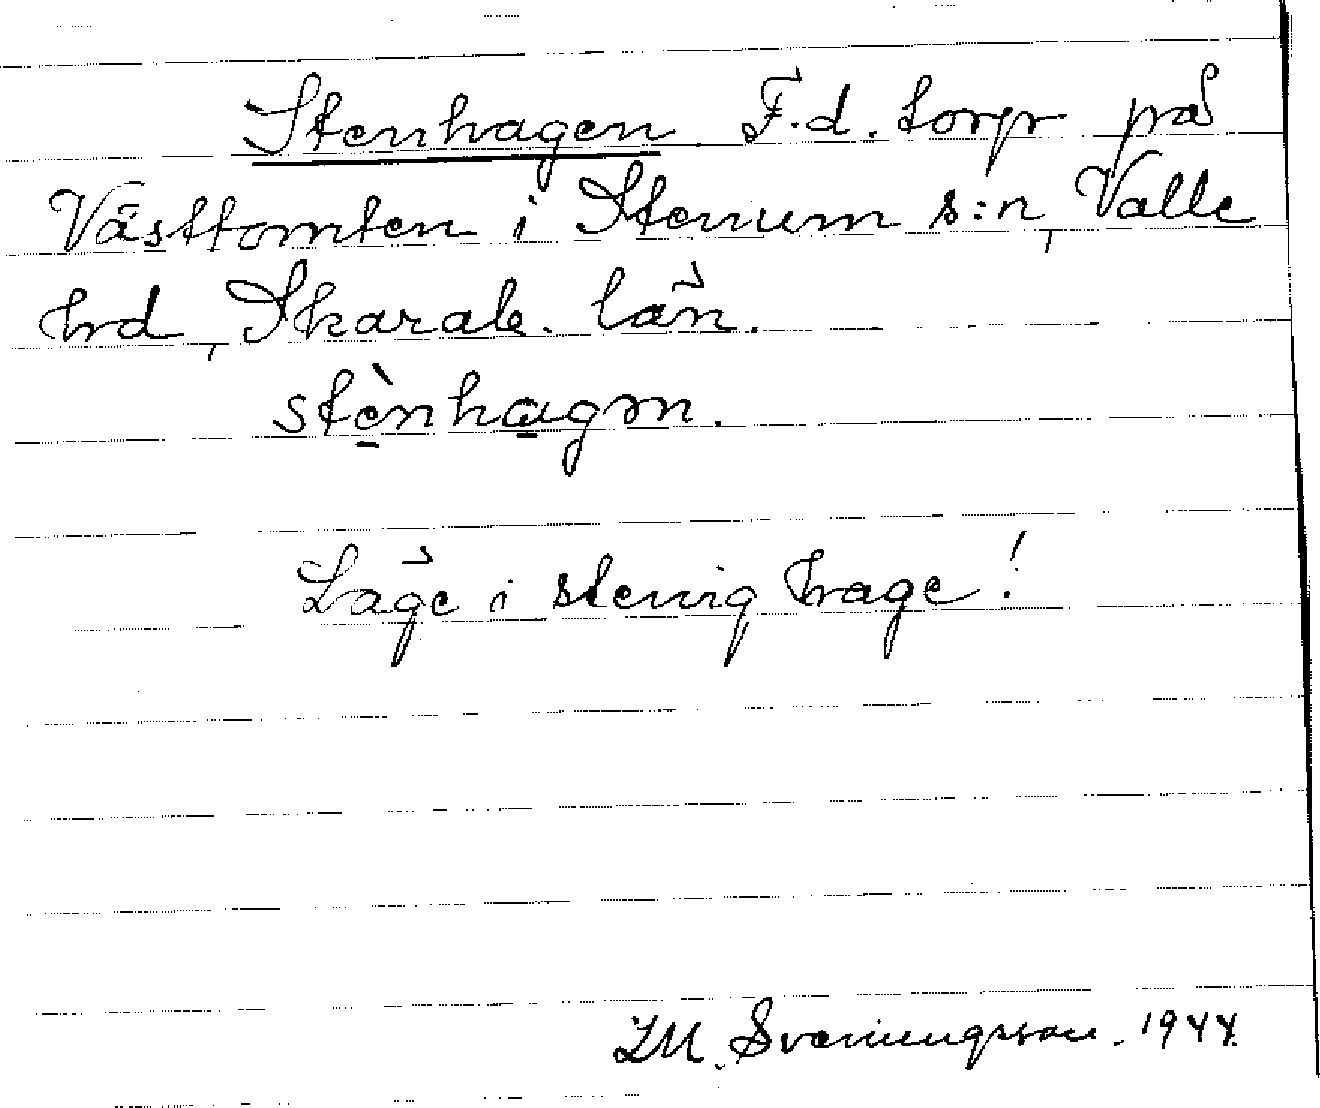 Stenhagen F.d. torp på
Västtomten i Stenum s:n, Valle
hd, Skarab. län.
stènhagən.
Läge i stenig hage!
I.M. Svenungsson. 1944.